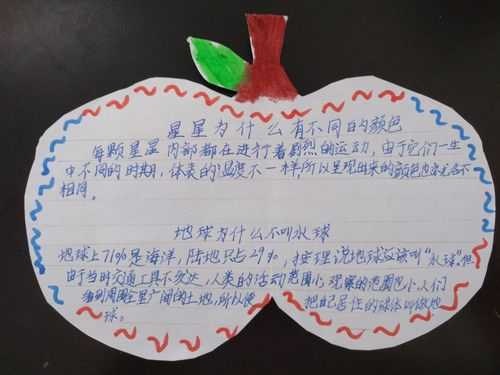 星星为什么有不同的颜色
每颗星星内部都在进行着剧烈的运动,由于它们一生
中不同的时期,体表的温度不一样所以呈现出来的颜色也各不
相同。
地球为什么不叫水球
地球上71%是海洋,陆地只占29%,按理说地球应该叫“水球”。但
由于当时交通工具不发达,人类的活动范围小观察的范围也小人们
看到周围全是广阔的土地,所以便 把自己居住的球体叫做地
球。